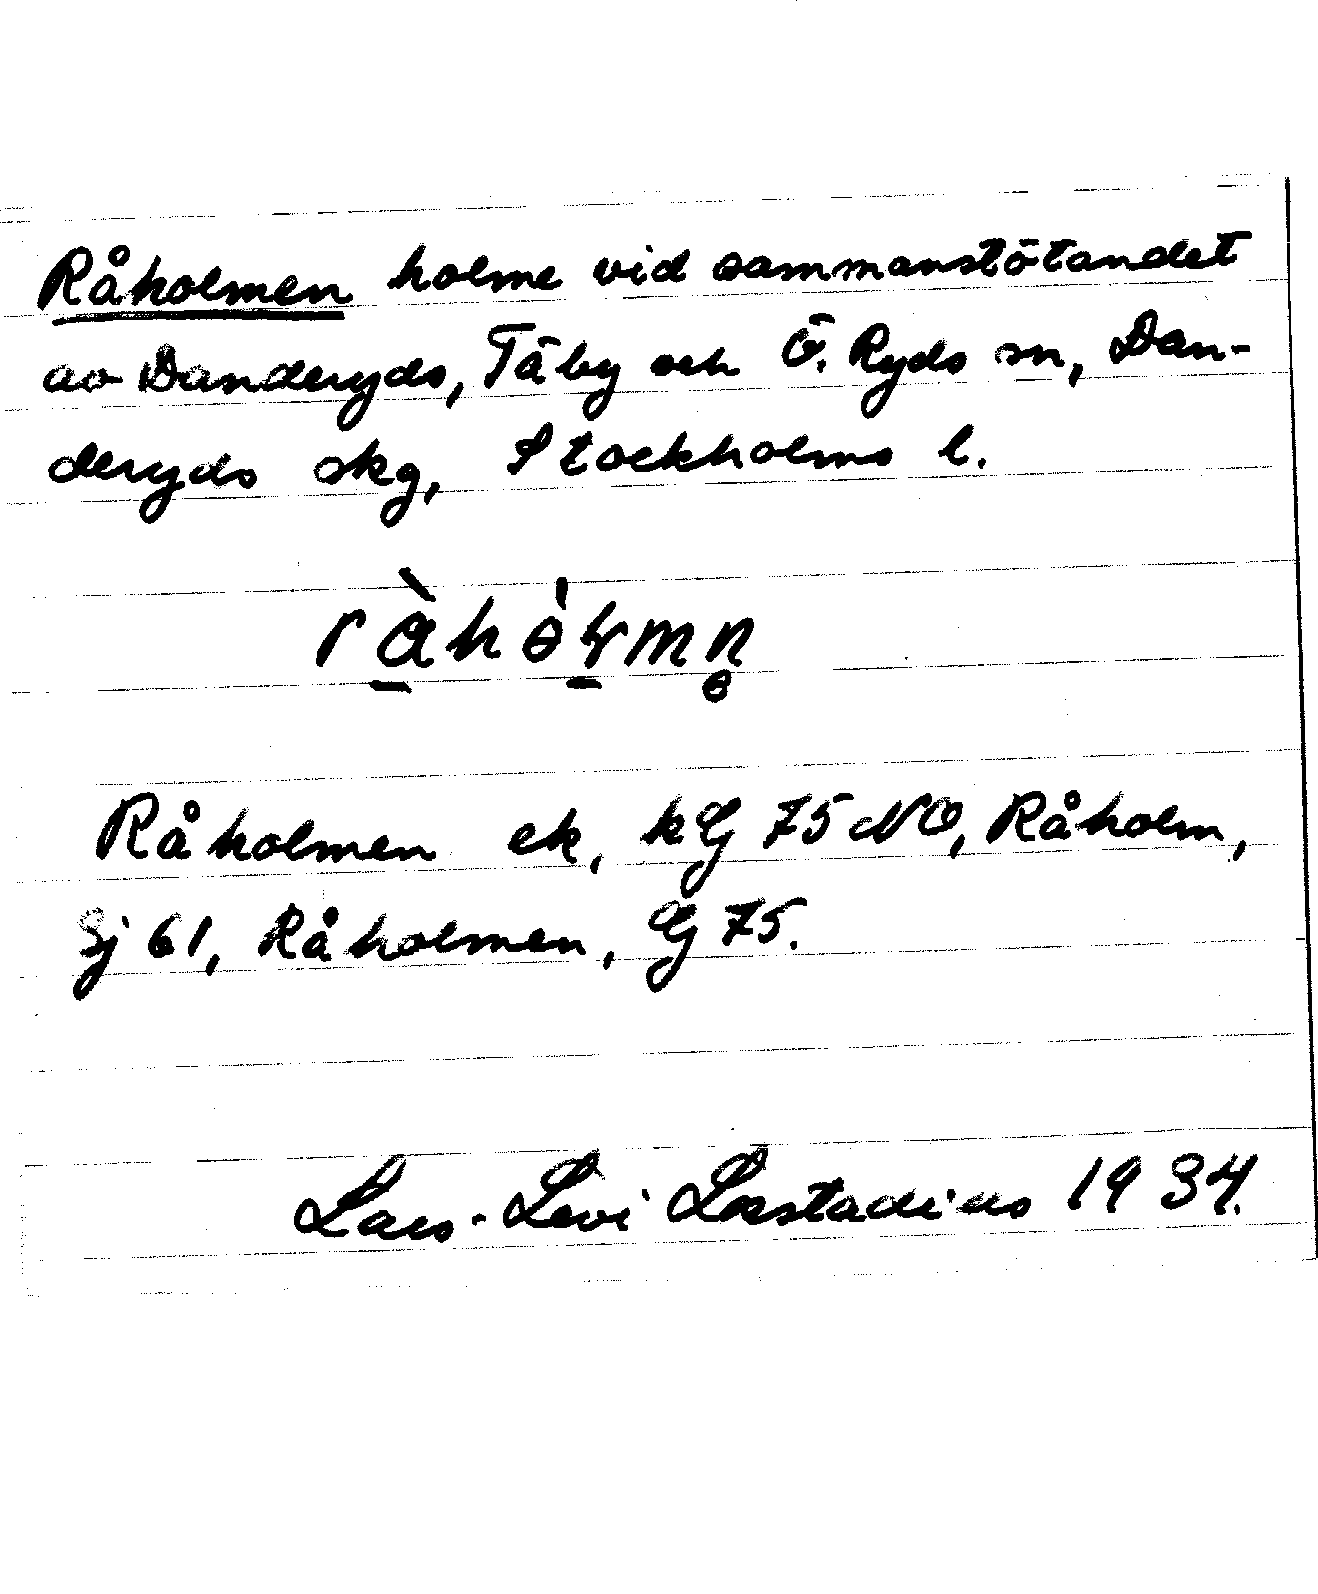 Råholmen holme vid sammanstötandet
av Danderyds, Täby och Ö. Ryds sn, Dan-
deryds skg, Stockholms l.
Råholmen ek, kG 75 NO, Råholm,
Sj 61, Råholmen, G 75.
Lars-Levi Læstadius 1934.